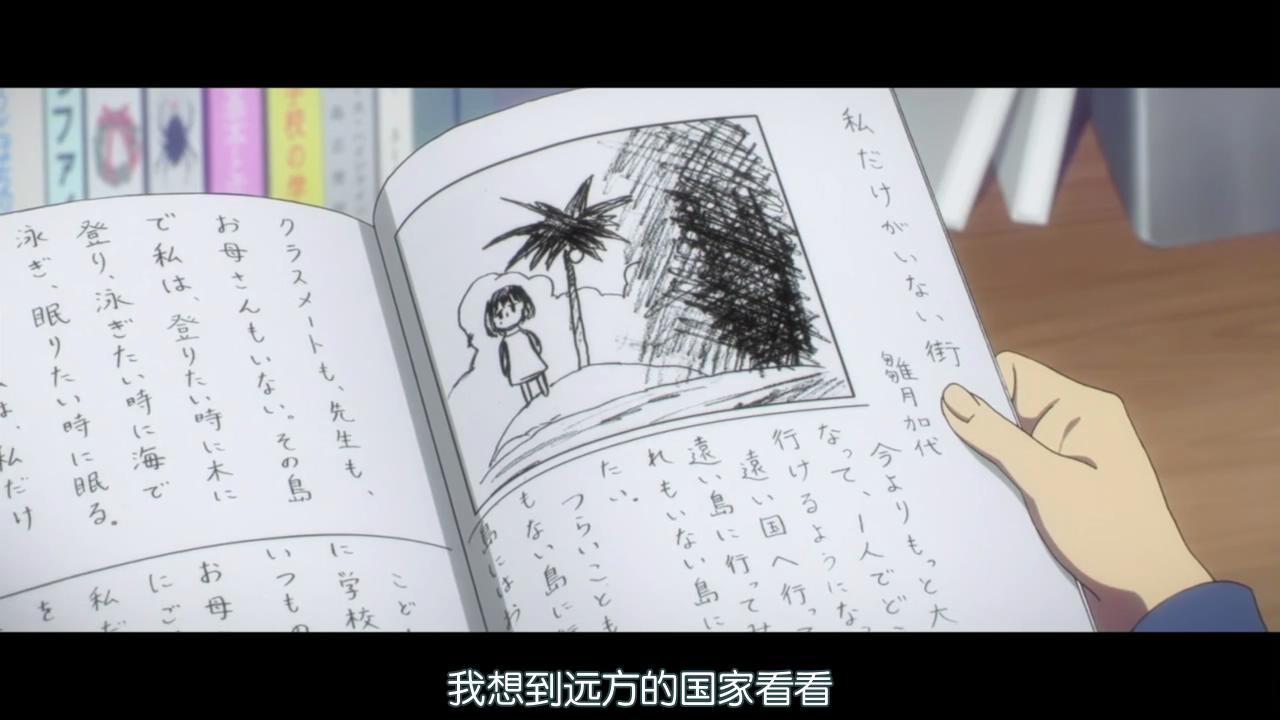 私だけがいない街
雛月加代
今よりもっと大
なって、1人でどこ
行けるようにな
遠い国へ行って
遠い島に行って
れもいない島に
たい。
つらいことも
もない島に
島にはお
クラスメートも、先生も、
お母さんもいない。その島
で私は、登りたい時に木に
登り、泳ぎたい時に海で
泳ぎ、眠りたい時に眠る。
は、私だけ
こど
に学校
いつもの
お母
にご
私だ
を
我想到远方的国家看看